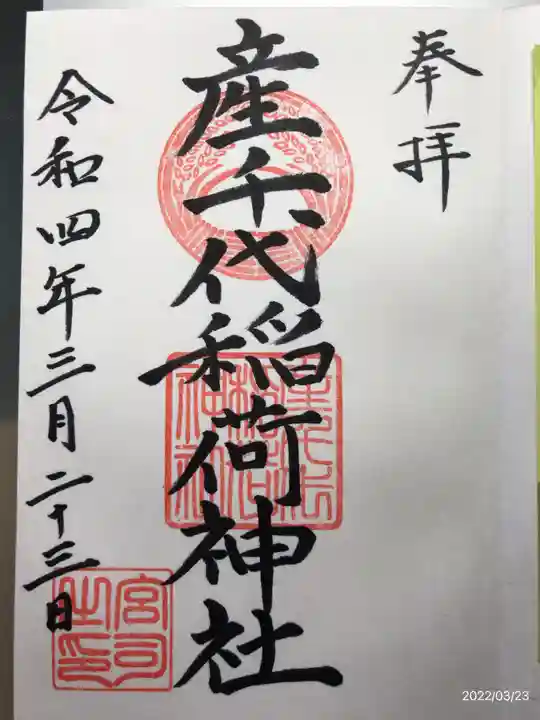 奉拝
産千代稲荷神社
令和四年三月二十三日
宮司
之印
2022/03/23